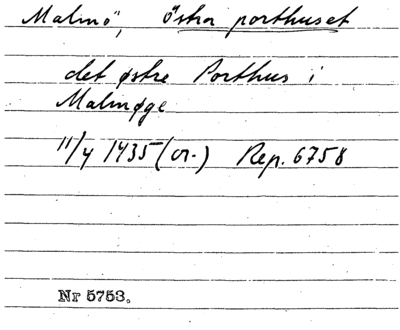 Malmö, östra porthuset
det østre Porthus i
Malmøge
11/4 1435 (or.) Rep. 6758
Nr 5753.